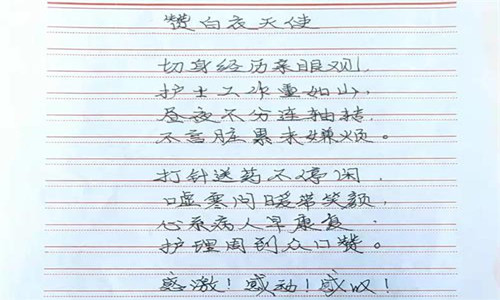 赞白衣天使
切身经历亲眼观,
护士工作重如山,
昼夜不分连轴转,
不言脏累未嫌烦。
打针送药不停闲,
嘘寒问暖带笑颜,
心系病人早康复,
护理周到众口赞。
感激!感动!感叹!